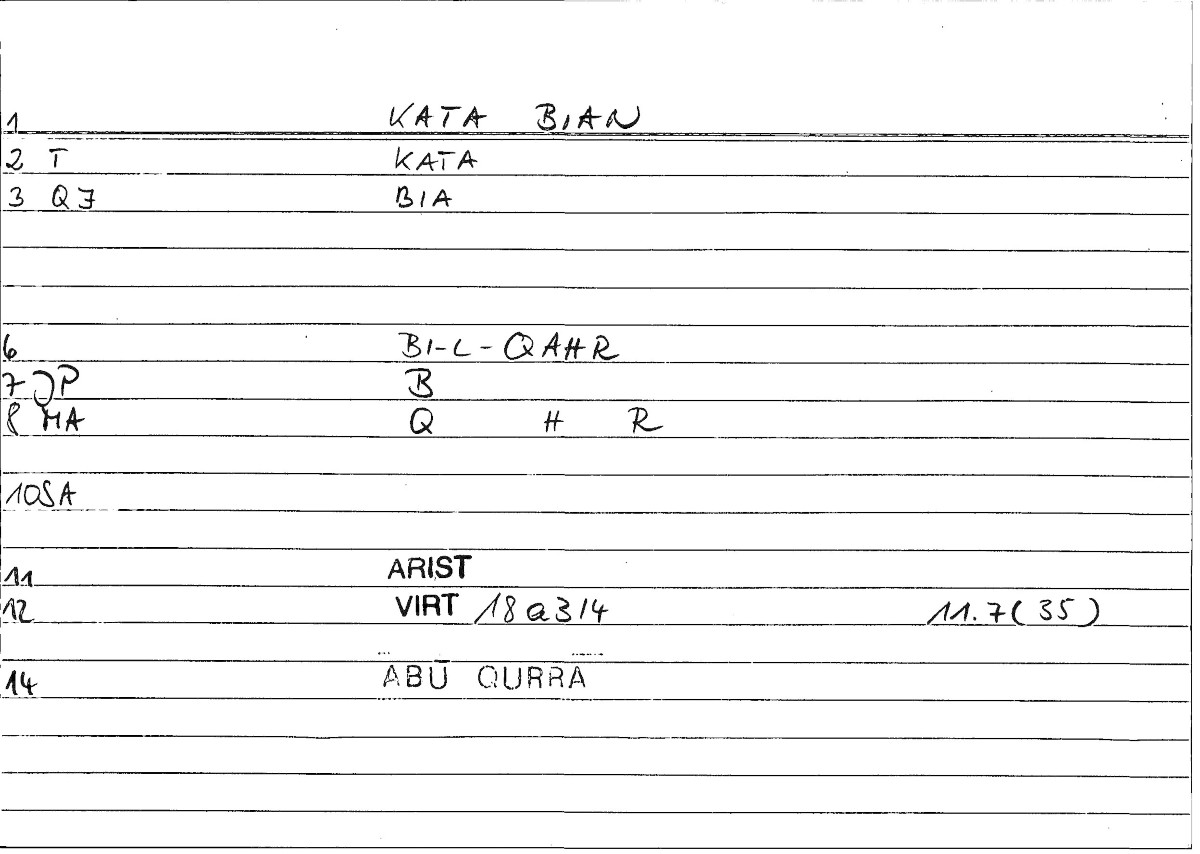 1 KATA BIAN
2 T KATA
3 QJ BIA
6 BI-L-QAHR
7 JP B
8 MA Q H R
10SA
11 ARIST
12 VIRT 18a3/4 11.7(35)
14 ABŪ QURRA